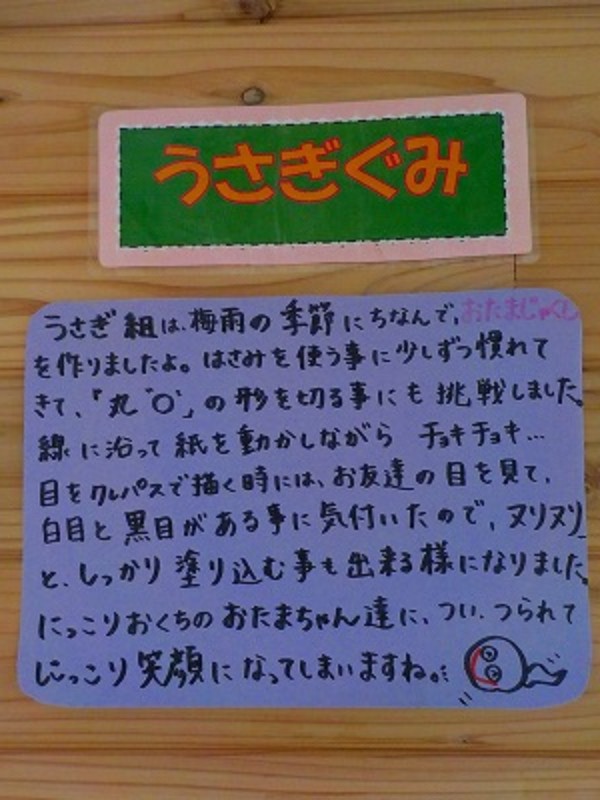 うさぎぐみ
うさぎ組は、梅雨の季節にちなんで、おたまじゃくし
を作りましたよ。はさみを使う事に少しずつ慣れて
きて、「丸"○"」の形を切る事にも挑戦しました。
線に沿って紙を動かしながら チョキチョキ…
目をクレパスで描く時には、お友達の目を見て、
白目と黒目がある事に気付いたので、ヌリヌリ
と、しっかり塗り込む事も出来る様になりました。
にっこりおくちのおたまちゃん達に、つい、つられて
にっこり笑顔になってしまいますね。